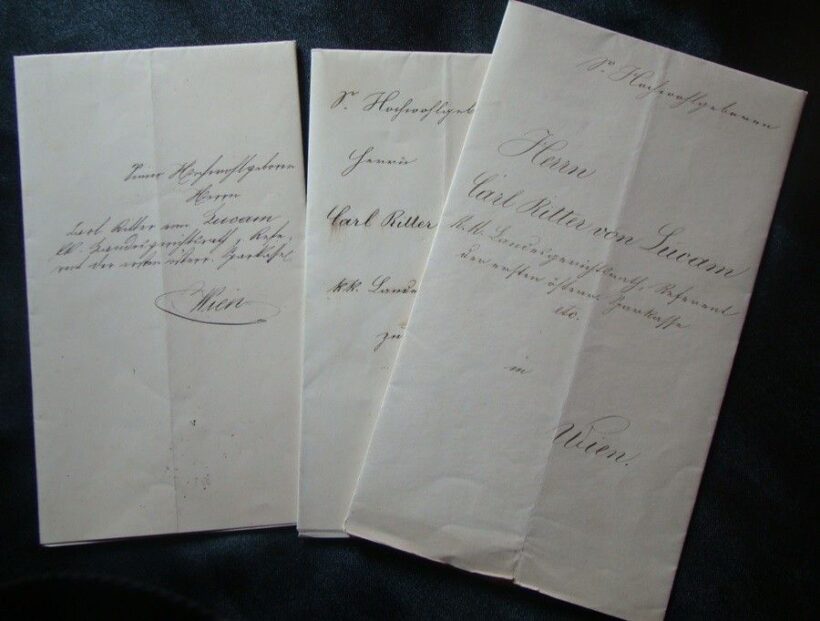 Seiner Hochwohlgeboren
Herrn
Carl Ritter von Lucam
kk. Landesgerichtsrath, Refe-
rent der ersten österr. Sparkasse
Wien
Sr. Hochwohlgeb
Herrn
Carl Ritter
kk. Lande
zu
Sr. Hochwohlgeboren
Herrn
Carl Ritter von Lucam
k.k. Landesgerichtsrath, Referent
der ersten österr. Sparkasse
etc.
in
Wien.